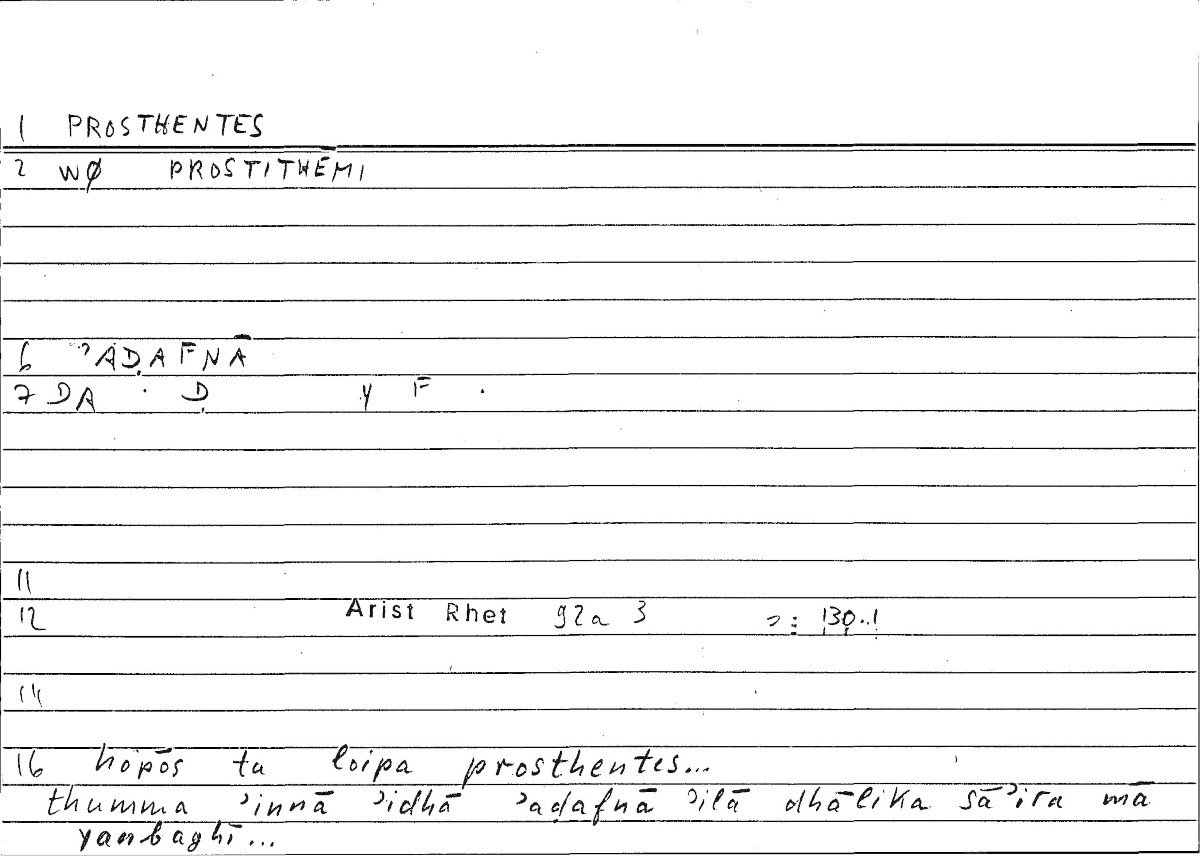 1 PROSTHENTES
2 WØ PROSTITHĒMI
6 ʾAḌAFNĀ
7 DA · Ḍ y F ·
11
12 Arist Rhet 92a 3 : 130..1
14
16 hopōs ta loipa prosthentes...
thumma ʾinnā ʾidhā ʾaḍafnā ʾilā dhālika sāʾira mā
yanbaghī...